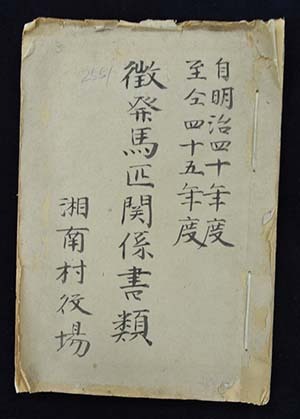 自明治四十年度
至仝四十五年度
徴発馬匹関係書類
湘南村役場
2551